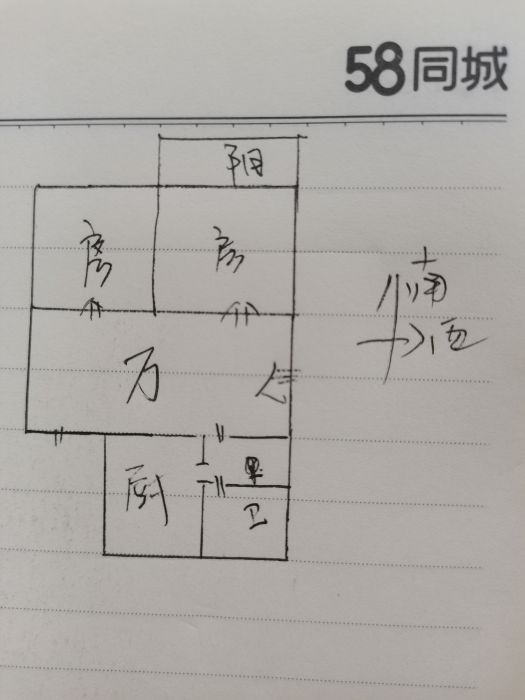 58同城
阳
房
房
南
西
厅
厨
卫